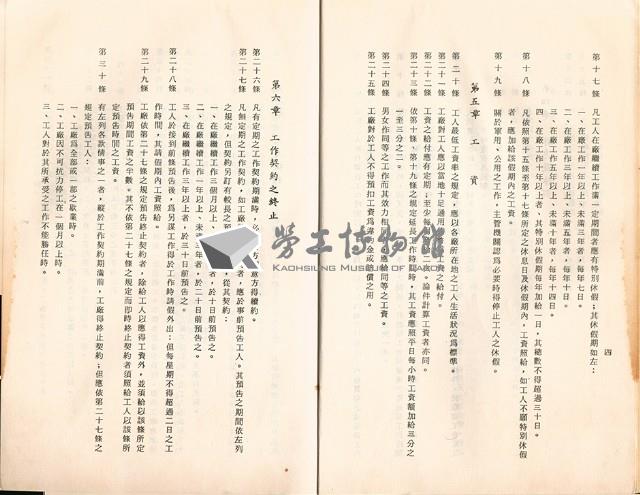 四
第十七條　凡工人在廠繼續工作滿一定期間者應有特別休假；其休假期如左：
一、在廠工作一年以上，未滿三年者，每年七日。
二、在廠工作三年以上，未滿五年者，每年十日。
三、在廠工作五年以上，未滿十年者，每年十四日。
四、在廠工作十年以上者，其特別休假期每年加給一日，其總數不得超過三十日。
第十八條　凡依照第十五條至第十七條所定之休息日及休假期內，工資照給，如工人不願特別休假
者，應加給該假期內之工資。
第十九條　關於軍用、公用之工作，主管機關認為必要時得停止工人之休假。
第五章　工　資
第二十條　工人最低工資率之規定，應以各廠所在地之工人生活狀況為標準。
第二十一條　工廠對工人應以當地十足通用貨幣為工資之給付。
第二十二條　工資之給付應有定期；至少每月二次。論件計算工資者亦同。
第二十三條　依第十條、第十九條之規定延長工作時間時，其工資應照平日每小時工資額加給三分之
一至三分之二。
第二十四條　男女作同等之工作而其效力相同者，應給同等之工資。
第二十五條　工廠對於工人不得預扣工資為違約金或賠償之用。
第六章　工作契約之終止
第二十六條　凡有定期之工作契約期滿時，必　方　意方得續約。
第二十七條　凡無定期之工作契約，如工廠　者，應於事前預告工人。其預告之期間依左列
之規定，但契約另訂有較長之預　，從其契約：
一、在廠繼續工作三個月以上　者，於十日前預告之。
二、在廠繼續工作一年以上、未滿三年者，於二十日前預告之。
三、在廠繼續工作三年以上者，於三十日前預告之。
第二十八條　工人於接到前條預告後，為另謀工作得於工作時請假外出；但每星期不得超過二日之工
作時間，其請假期內工資照給。
第二十九條　工廠依第二十七條之規定預告終止契約者，除給工人以應得工資外，並須給以該條所定
預告期間工資之半數。其不依第二十七條之規定而即時終止契約者須照給工人以該條所
定預告時間之工資。
第三十條　有左列各款情事之一者，縱於工作契約期滿前，工廠得終止契約；但應依第二十七條之
規定預告工人：
一、工廠為全部或一部之歇業時。
二、工廠因不可抗力停工在一個月以上時。
三、工人對於其所承受之工作不能勝任時。
勞工博物館
KAOHSIUNG MUSEUM OF LABOR